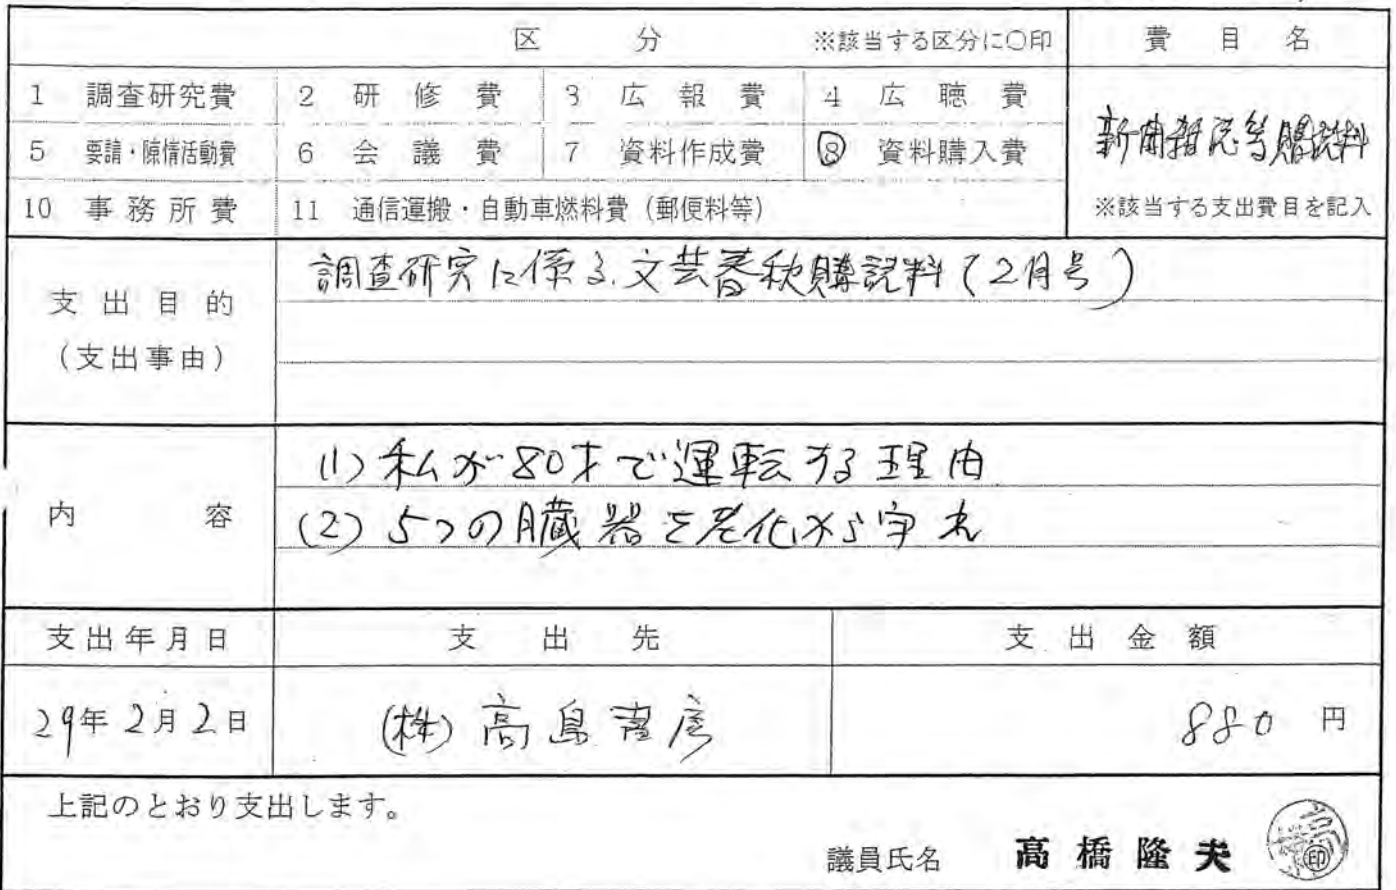 区 分 ※該当する区分に○印 費 目 名
1 調査研究費 2 研 修 費 3 広 報 費 4 広 聴 費
5 要請・陳情活動費 6 会 議 費 7 資料作成費 ⑧ 資料購入費
新聞雑誌等購読料
10 事 務 所 費 11 通信運搬・自動車燃料費（郵便料等） ※該当する支出費目を記入
支 出 目 的
（支出事由）
調査研究に係る文芸春秋購読料（2月号）
内 容
(1) 私が80才で運転する理由
(2) 5つの臓器を老化から守れ
支出年月日 支 出 先 支 出 金 額
29年2月2日 (株)高島書房 880 円
上記のとおり支出します。
議員氏名 高橋隆夫 印